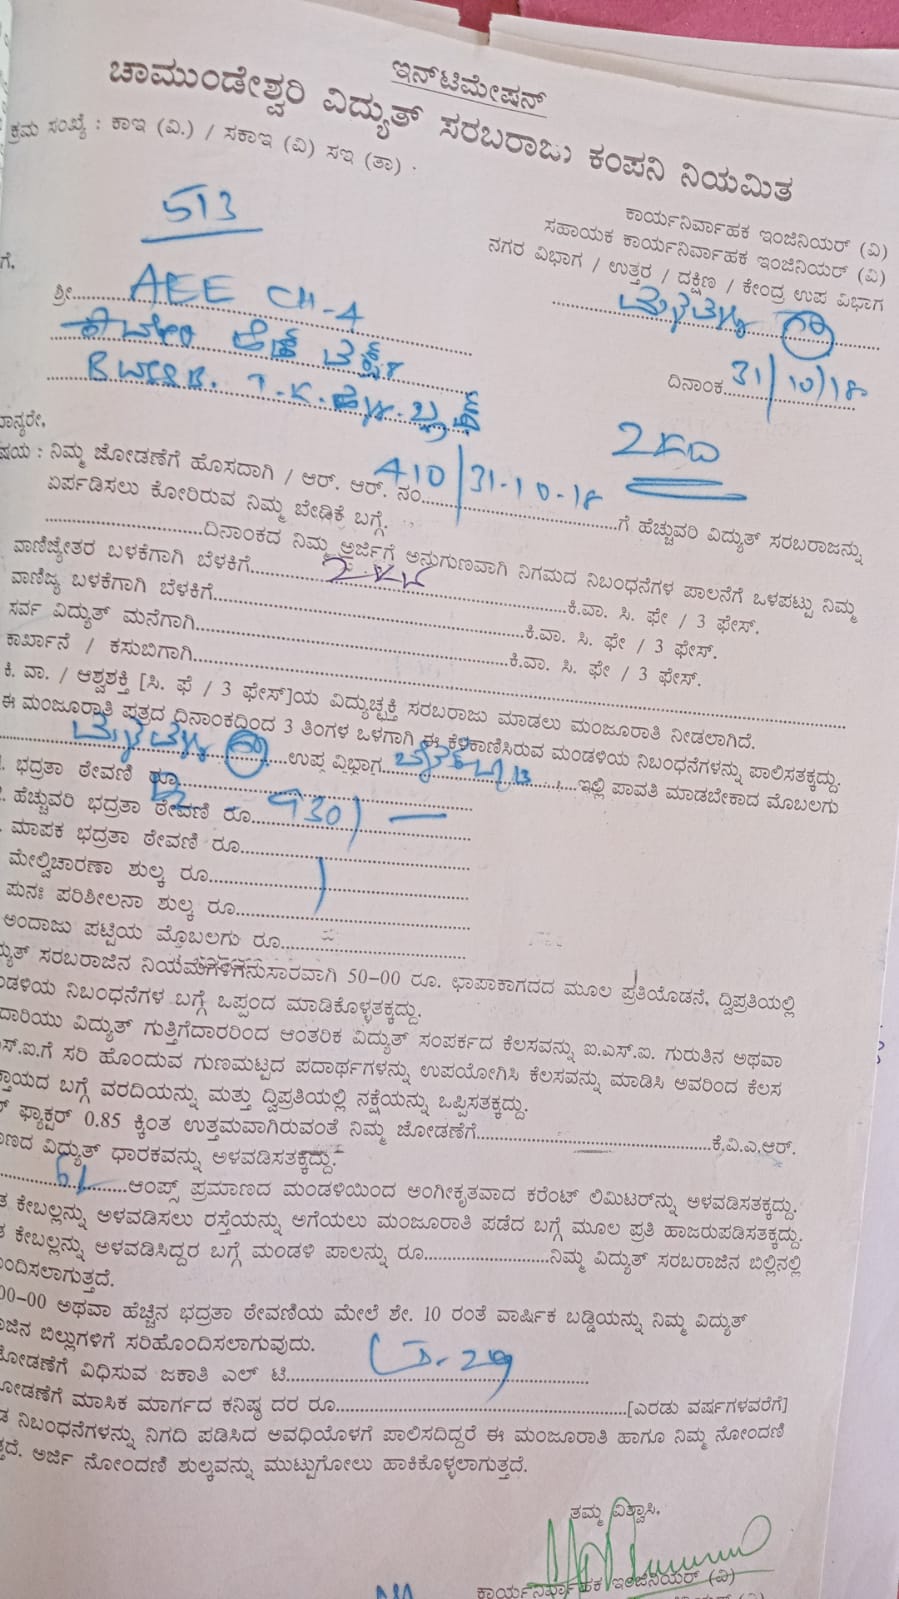 ಇನ್‌ಟಿಮೇಷನ್
ಚಾಮುಂಡೇಶ್ವರಿ ವಿದ್ಯುತ್ ಸರಬರಾಜು ಕಂಪನಿ ನಿಯಮಿತ
ಕ್ರಮ ಸಂಖ್ಯೆ : ಕಾಇ (ವಿ.) / ಸಕಾಇ (ವಿ) ಸಇ (ತಾ) .
513
ಕಾರ್ಯನಿರ್ವಾಹಕ ಇಂಜಿನಿಯರ್ (ವಿ)
ಸಹಾಯಕ ಕಾರ್ಯನಿರ್ವಾಹಕ ಇಂಜಿನಿಯರ್ (ವಿ)
ನಗರ ವಿಭಾಗ / ಉತ್ತರ / ದಕ್ಷಿಣ / ಕೇಂದ್ರ ಉಪ ವಿಭಾಗ
ಗೆ,
ಶ್ರೀ AEE CH-4
T.K.
ದಿನಾಂಕ 31/10/18
ಮಾನ್ಯರೇ,
2KW
ವಿಷಯ : ನಿಮ್ಮ ಜೋಡಣೆಗೆ ಹೊಸದಾಗಿ / ಆರ್. ಆರ್. ನಂ. 410/31-10-18 ಗೆ ಹೆಚ್ಚುವರಿ ವಿದ್ಯುತ್ ಸರಬರಾಜನ್ನು
ಏರ್ಪಡಿಸಲು ಕೋರಿರುವ ನಿಮ್ಮ ಬೇಡಿಕೆ ಬಗ್ಗೆ.
ದಿನಾಂಕದ ನಿಮ್ಮ ಅರ್ಜಿಗೆ ಅನುಗುಣವಾಗಿ ನಿಗಮದ ನಿಬಂಧನೆಗಳ ಪಾಲನೆಗೆ ಒಳಪಟ್ಟು ನಿಮ್ಮ
ವಾಣಿಜ್ಯೇತರ ಬಳಕೆಗಾಗಿ ಬೆಳಕಿಗೆ 2KW ಕಿ.ವಾ. ಸಿ. ಫೇ / 3 ಫೇಸ್.
ವಾಣಿಜ್ಯ ಬಳಕೆಗಾಗಿ ಬೆಳಕಿಗೆ ಕಿ.ವಾ. ಸಿ. ಫೇ / 3 ಫೇಸ್.
ಸರ್ವ ವಿದ್ಯುತ್ ಮನೆಗಾಗಿ ಕಿ.ವಾ. ಸಿ. ಫೇ / 3 ಫೇಸ್.
ಕಾರ್ಖಾನೆ / ಕಸುಬಿಗಾಗಿ
ಕಿ. ವಾ. / ಆಶ್ವಶಕ್ತಿ [ಸಿ. ಫೆ / 3 ಫೇಸ್]ಯ ವಿದ್ಯುಚ್ಛಕ್ತಿ ಸರಬರಾಜು ಮಾಡಲು ಮಂಜೂರಾತಿ ನೀಡಲಾಗಿದೆ.
ಈ ಮಂಜೂರಾತಿ ಪತ್ರದ ದಿನಾಂಕದಿಂದ 3 ತಿಂಗಳ ಒಳಗಾಗಿ ಈ ಕೆಳಕಾಣಿಸಿರುವ ಮಂಡಳಿಯ ನಿಬಂಧನೆಗಳನ್ನು ಪಾಲಿಸತಕ್ಕದ್ದು.
ಉಪ ವಿಭಾಗ ಇಲ್ಲಿ ಪಾವತಿ ಮಾಡಬೇಕಾದ ಮೊಬಲಗು
ಭದ್ರತಾ ಠೇವಣಿ ರೂ
ಹೆಚ್ಚುವರಿ ಭದ್ರತಾ ಠೇವಣಿ ರೂ 930/-
ಮಾಪಕ ಭದ್ರತಾ ಠೇವಣಿ ರೂ
ಮೇಲ್ವಿಚಾರಣಾ ಶುಲ್ಕ ರೂ
ಪುನಃ ಪರಿಶೀಲನಾ ಶುಲ್ಕ ರೂ
ಅಂದಾಜು ಪಟ್ಟಿಯ ಮೊಬಲಗು ರೂ
ಸರಬರಾಜಿನ ನಿಯಮಗಳಿಗನುಸಾರವಾಗಿ 50-00 ರೂ. ಛಾಪಾಕಾಗದದ ಮೂಲ ಪ್ರತಿಯೊಡನೆ, ದ್ವಿಪ್ರತಿಯಲ್ಲಿ
ನಿಬಂಧನೆಗಳ ಬಗ್ಗೆ ಒಪ್ಪಂದ ಮಾಡಿಕೊಳ್ಳತಕ್ಕದ್ದು.
ವಿದ್ಯುತ್ ಗುತ್ತಿಗೆದಾರರಿಂದ ಆಂತರಿಕ ವಿದ್ಯುತ್ ಸಂಪರ್ಕದ ಕೆಲಸವನ್ನು ಐ.ಎಸ್.ಐ. ಗುರುತಿನ ಅಥವಾ
ಸರಿ ಹೊಂದುವ ಗುಣಮಟ್ಟದ ಪದಾರ್ಥಗಳನ್ನು ಉಪಯೋಗಿಸಿ ಕೆಲಸವನ್ನು ಮಾಡಿಸಿ ಅವರಿಂದ ಕೆಲಸ
ಬಗ್ಗೆ ವರದಿಯನ್ನು ಮತ್ತು ದ್ವಿಪ್ರತಿಯಲ್ಲಿ ನಕ್ಷೆಯನ್ನು ಒಪ್ಪಿಸತಕ್ಕದ್ದು.
ಫ್ಯಾಕ್ಟರ್ 0.85 ಕ್ಕಿಂತ ಉತ್ತಮವಾಗಿರುವಂತೆ ನಿಮ್ಮ ಜೋಡಣೆಗೆ ಕೆ.ವಿ.ಎ.ಆರ್.
ವಿದ್ಯುತ್ ಧಾರಕವನ್ನು ಅಳವಡಿಸತಕ್ಕದ್ದು.
ಆಂಪ್ಸ್ ಪ್ರಮಾಣದ ಮಂಡಳಿಯಿಂದ ಅಂಗೀಕೃತವಾದ ಕರೆಂಟ್ ಲಿಮಿಟರ್‌ನ್ನು ಅಳವಡಿಸತಕ್ಕದ್ದು.
ಕೇಬಲ್ಲನ್ನು ಅಳವಡಿಸಲು ರಸ್ತೆಯನ್ನು ಅಗೆಯಲು ಮಂಜೂರಾತಿ ಪಡೆದ ಬಗ್ಗೆ ಮೂಲ ಪ್ರತಿ ಹಾಜರುಪಡಿಸತಕ್ಕದ್ದು.
ಕೇಬಲ್ಲನ್ನು ಅಳವಡಿಸಿದ್ದರ ಬಗ್ಗೆ ಮಂಡಳಿ ಪಾಲನ್ನು ರೂ ನಿಮ್ಮ ವಿದ್ಯುತ್ ಸರಬರಾಜಿನ ಬಿಲ್ಲಿನಲ್ಲಿ
ಅಥವಾ ಹೆಚ್ಚಿನ ಭದ್ರತಾ ಠೇವಣಿಯ ಮೇಲೆ ಶೇ. 10 ರಂತೆ ವಾರ್ಷಿಕ ಬಡ್ಡಿಯನ್ನು ನಿಮ್ಮ ವಿದ್ಯುತ್
ಬಿಲ್ಲುಗಳಿಗೆ ಸರಿಹೊಂದಿಸಲಾಗುವುದು.
ಜೋಡಣೆಗೆ ವಿಧಿಸುವ ಜಕಾತಿ ಎಲ್ ಟಿ
ಜೋಡಣೆಗೆ ಮಾಸಿಕ ಮಾರ್ಗದ ಕನಿಷ್ಠ ದರ ರೂ [ಎರಡು ವರ್ಷಗಳವರೆಗೆ]
ನಿಬಂಧನೆಗಳನ್ನು ನಿಗದಿ ಪಡಿಸಿದ ಅವಧಿಯೊಳಗೆ ಪಾಲಿಸದಿದ್ದರೆ ಈ ಮಂಜೂರಾತಿ ಹಾಗೂ ನಿಮ್ಮ ನೋಂದಣಿ
ಅರ್ಜಿ ನೋಂದಣಿ ಶುಲ್ಕವನ್ನು ಮುಟ್ಟುಗೋಲು ಹಾಕಿಕೊಳ್ಳಲಾಗುತ್ತದೆ.
ತಮ್ಮ ವಿಶ್ವಾಸಿ,
ಕಾರ್ಯನಿರ್ವಾಹಕ ಇಂಜಿನಿಯರ್ (ವಿ)